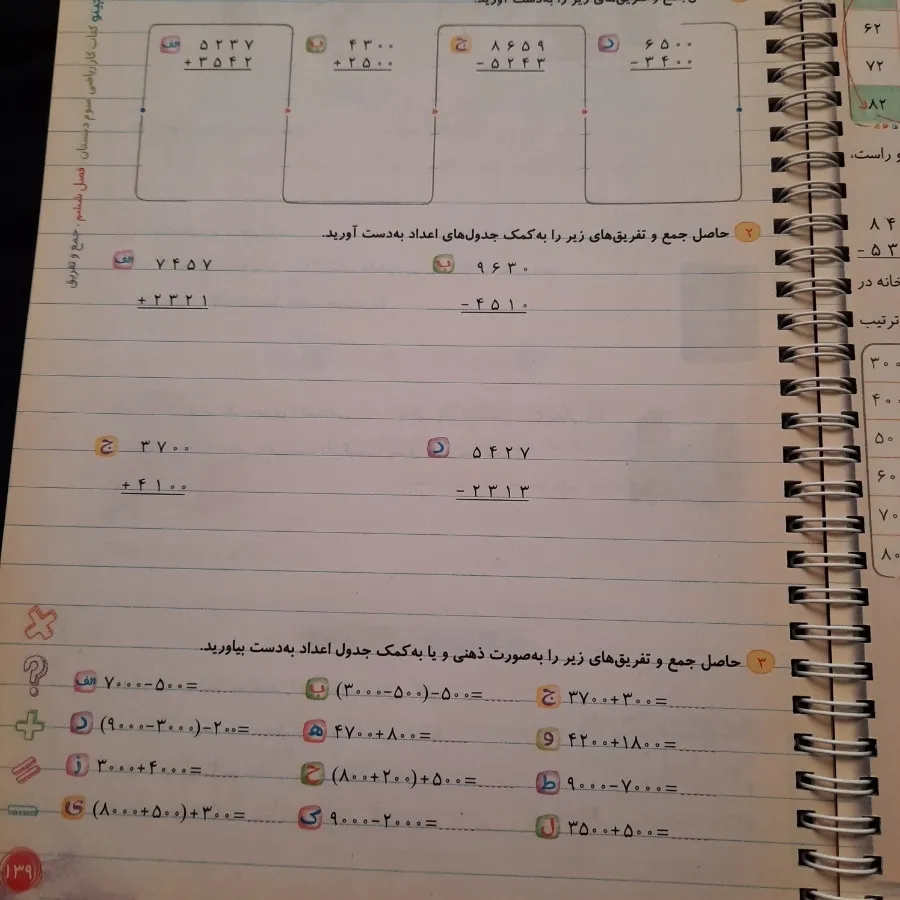 جمع و تفریق‌های زیر را به‌دست آورید.
الف ۵۲۳۷
+ ۳۵۴۲
ب ۴۳۰۰
+ ۲۵۰۰
ج ۸۶۵۹
− ۵۲۴۳
د ۶۵۰۰
− ۳۴۰۰
۲ حاصل جمع و تفریق‌های زیر را به‌کمک جدول‌های اعداد به‌دست آورید.
الف ۷۴۵۷
+ ۲۳۲۱
ب ۹۶۳۰
− ۴۵۱۰
ج ۳۷۰۰
+ ۴۱۰۰
د ۵۴۲۷
− ۲۳۱۳
۳ حاصل جمع و تفریق‌های زیر را به‌صورت ذهنی و یا به‌کمک جدول اعداد به‌دست بیاورید.
الف ۷۰۰۰−۵۰۰=
ب (۳۰۰۰−۵۰۰)−۵۰۰=
ج ۳۷۰۰+۳۰۰=
د (۹۰۰۰−۳۰۰۰)−۲۰۰=
ه ۴۷۰۰+۸۰۰=
و ۴۲۰۰+۱۸۰۰=
ز ۳۰۰۰+۴۰۰۰=
ح (۸۰۰+۲۰۰)+۵۰۰=
ط ۹۰۰۰−۷۰۰۰=
ی (۸۰۰۰+۵۰۰)+۳۰۰=
ک ۹۰۰۰−۲۰۰۰=
ل ۳۵۰۰+۵۰۰=
کتاب کار ریاضی سوم دبستان . فصل ششم . جمع و تفریق
۱۳۹
۶۲
۷۲
۸۲
و راست،
۸۴
− ۵۳
خانه در
ترتیب
۳۰۰
۴۰۰
۵۰
۶۰
۷۰
۸۰